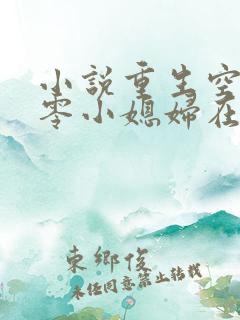 小說重生空
零小媳婦在
東鄉俊
未任同意禁止轉載